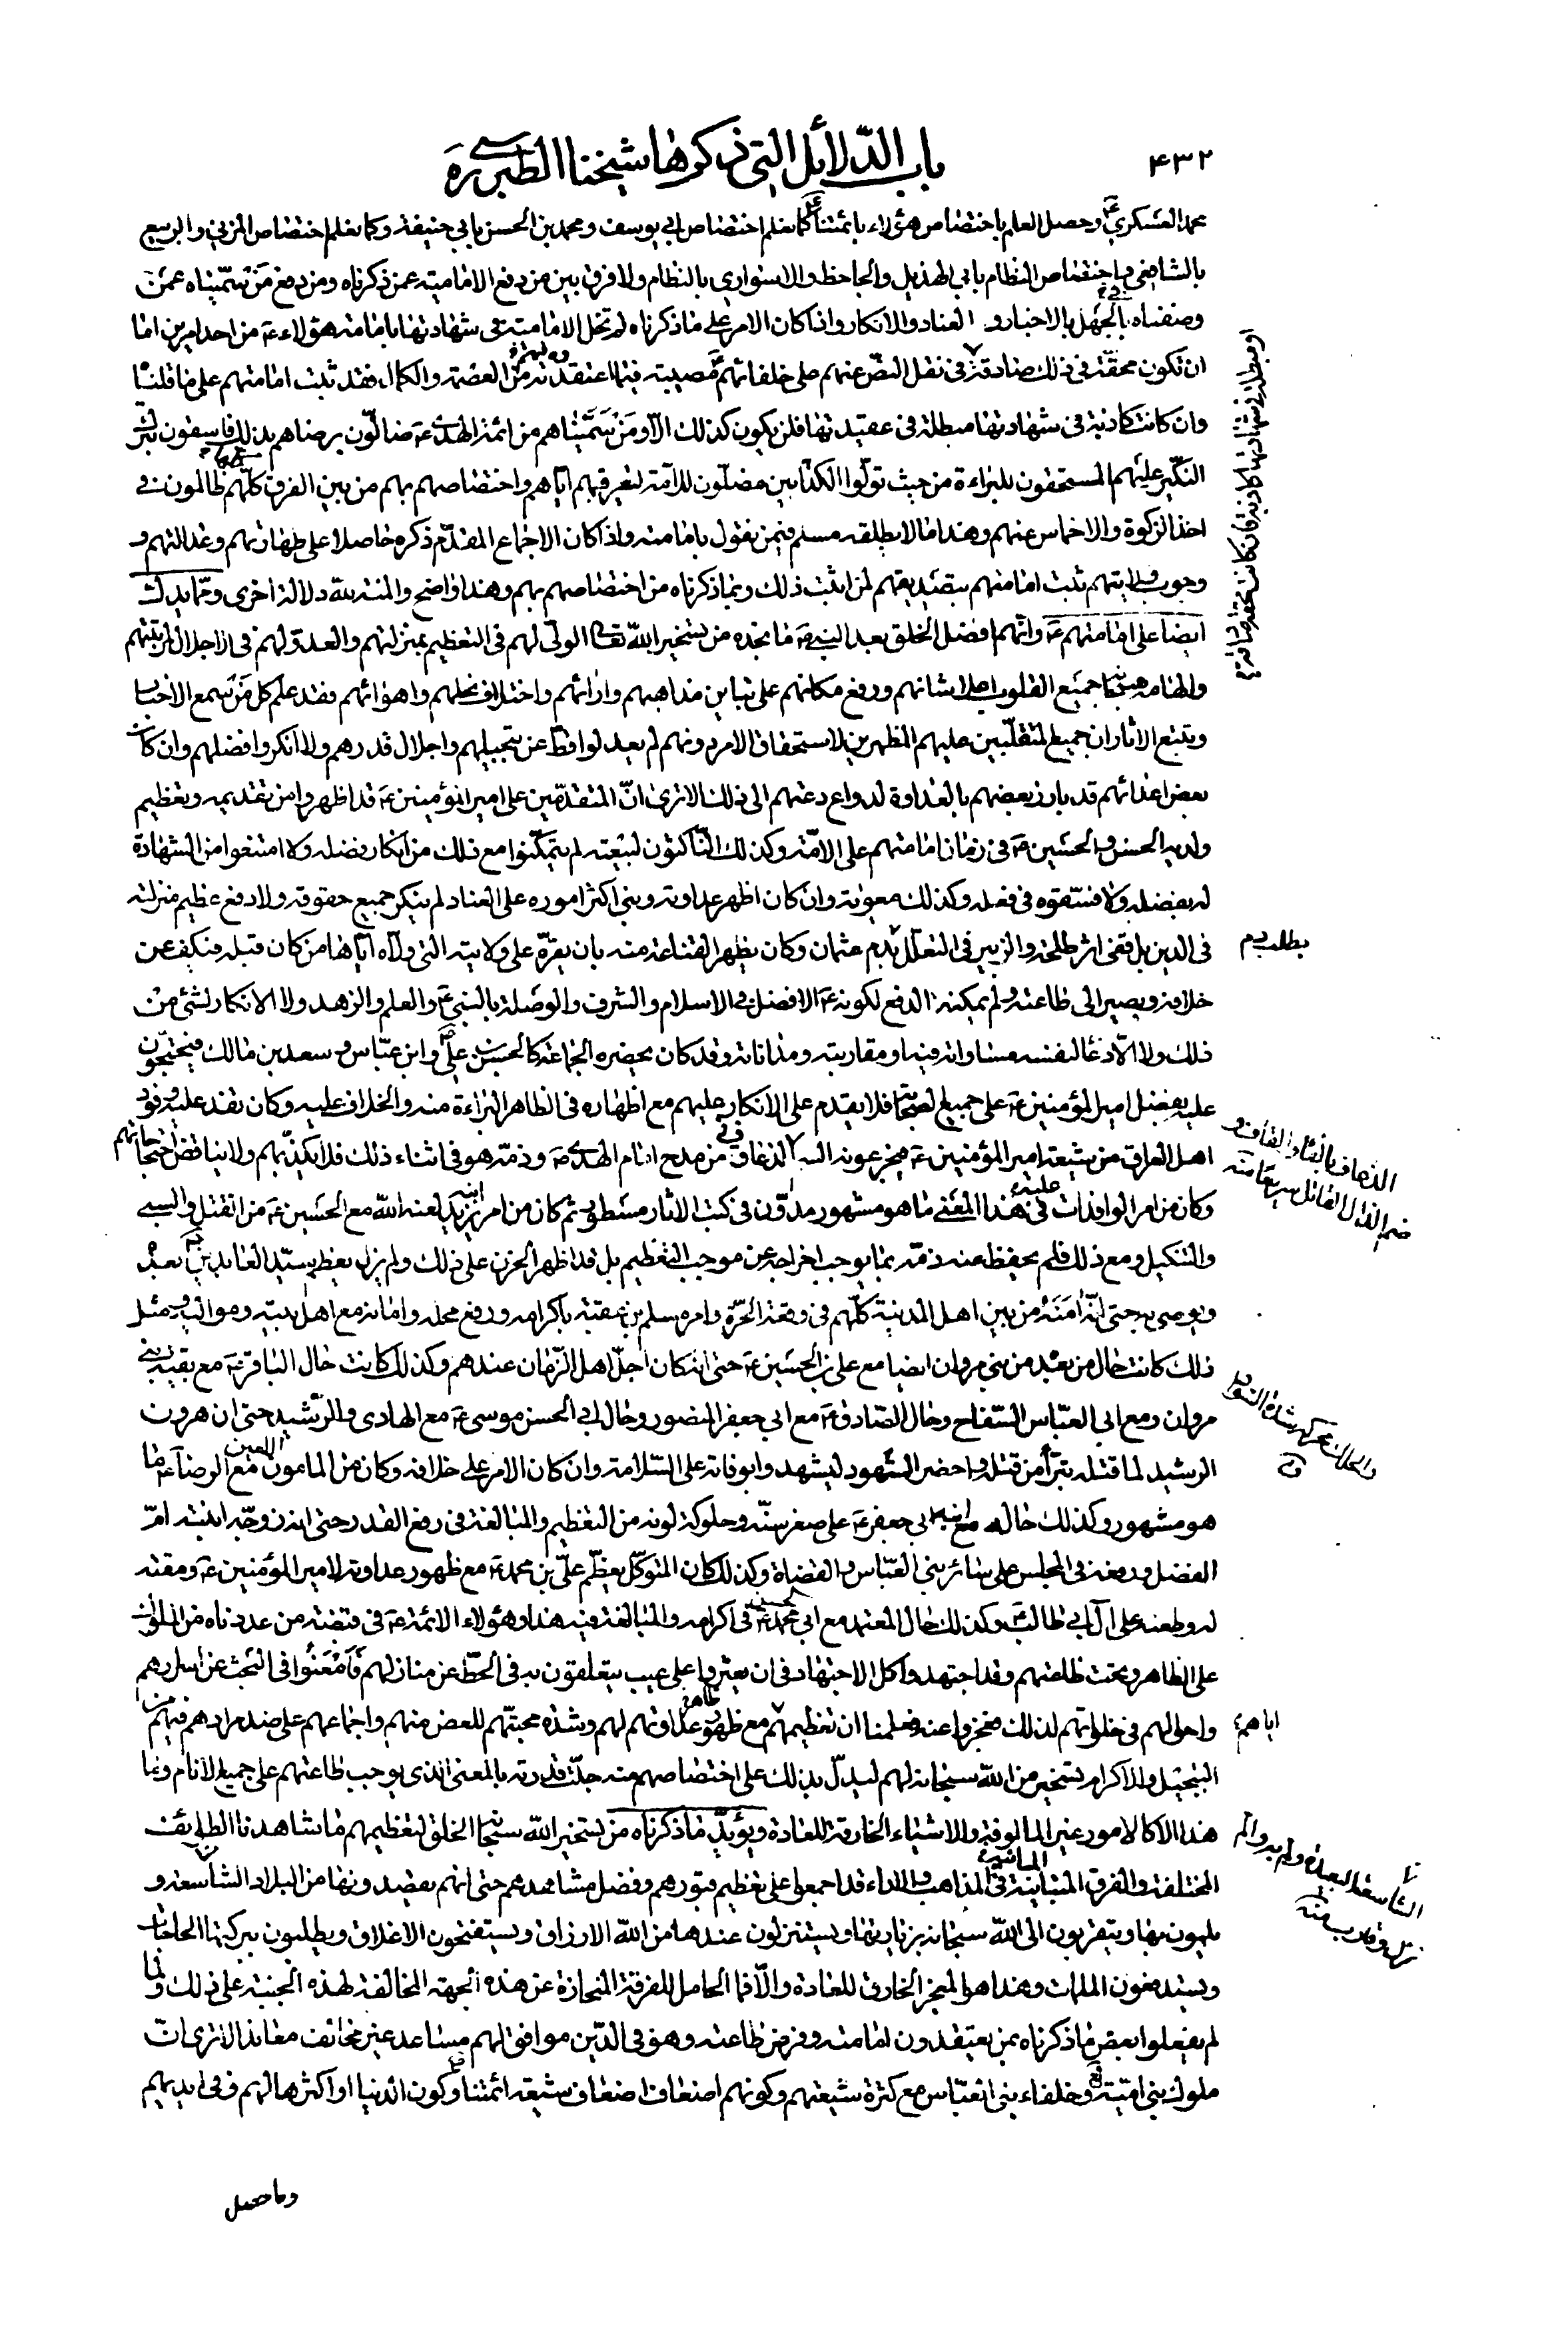 ٤٣٢
باب الدّلائل التي ذكرها شيخنا الطبرسي ره
محمد العسكري ع وحصل العلم باختصاص هؤلاء بائمتنا ع كما نعلم اختصاص ابي يوسف ومحمد بن الحسن بابي حنيفة وكما نعلم اختصاص المزني والربيع
بالشافعي واختصاص النظام بابي الهذيل والجاحظ والاسواري بالنظام ولا فرق بين من دفع الامامية عمن ذكرناه ومن دفع من سمّيناه عمن
وصفناه في الجهل بالاخبار و العناد والانكار واذا كان الامر على ما ذكرناه لم تخل الامامية في شهادتها بامامة هؤلاء ع من احد امرين اما
ان تكون محقة في ذلك صادقة في نقل النصّ عنهم على خلفائهم ع مصيبة فيما اعتقدته من العصمة والكمال فقد ثبت امامتهم على ما قلنا
وان كانت كاذبة في شهادتها مبطلة في عقيدتها فلن يكون كذلك الا ومن سمّيناهم من ائمة الهدى ع ضالّون برضاهم بذلك فاسقون بترك
النكير عليهم المستحقون للبراءة من حيث تولّوا الكذابين مضلّون للامة لتقريبهم اياهم واختصاصهم بهم من بين الفرق كلّهم ظالمون في
اخذ الزكوة والاخماس عنهم وهذا ما لا يطلقه مسلم فيمن يقول بامامته واذا كان الاجماع المقدّم ذكره حاصلا على طهارتهم وعدالتهم و
وجوب ولايتهم ثبت امامتهم بتصديقهم لمن اثبت ذلك وبما ذكرناه من اختصاصهم بهم وهذا واضح والمنة لله دلالة اخرى وممّا يدلّ
ايضا على امامتهم ع وانّهم افضل الخلق بعد النبي ص ما نجده من تسخير الله تعالى الولي لهم في التعظيم بمنزلتهم والعدو لهم في الاجلال لمرتبتهم
والهامه سبحانه جميع القلوب اعلاء شانهم ورفع مكانهم على تباين مذاهبهم وارائهم واختلاف نحلهم واهوائهم فقد علم كل من سمع الاخبار
وتتبع الاثار ان جميع المتغلّبين عليهم المظهرين لاستحقاق الامر دونهم لم يعدلوا قطّ عن تبجيلهم واجلال قدرهم ولا انكروا فضلهم وان كان
بعض اعدائهم قد بارز بعضهم بالعداوة لدواع دعتهم الى ذلك الا ترى انّ المتقدّمين على امير المؤمنين ع قد اظهروا من تقديمه وتعظيم
ولديه الحسن والحسين ع في زمان امامتهم على الامّة وكذلك النّاكثون لبيعته لم يتمكّنوا مع ذلك من انكار فضله ولا امتنعوا من الشهادة
له بفضله ولا فسّقوه في فعله وكذلك معوية وان كان اظهر عداوته وبنى اكثر اموره على العناد لم ينكر جميع حقوقه ولا دفع عظيم منزلته
في الدين بل قفى اثر طلحة والزبير في التعلّل بدم عثمان وكان يظهر القناعة منه بان يقرّه على ولايته التي ولاه اياها من كان قبله فيكف عن
خلافه ويصير الى طاعته ولم يمكنه الدفع لكونه ع الافضل في الاسلام والشرف والوصلة بالنبي ع والعلم والزهد ولا الانكار لشئ من
ذلك ولا الادّعاء لنفسه مساواته فيه او مقاربته ومداناته وقد كان يحضره الجماعة كالحسن بن علي ع وابن عبّاس وسعد بن مالك فيحتجّون
عليه بفضل امير المؤمنين ع على جميع الصحابة فلا يقدم على الانكار عليهم مع اظهاره في الظاهر البراءة منه والخلاف عليه وكان تفد عليه وفود
اهل العراق من شيعة امير المؤمنين ع فيجرعونه السم الذعاف من مدح امام الهدى ص وذمّه هو في اثناء ذلك فلا يكذّبهم ولا يناقض احتجاجاتهم
وكان من امر الوافدات عليه في هذا المعنى ما هو مشهور مدوّن في كتب الاثار مسطور ثم كان من امر ابنه يزيد لعنه الله مع الحسين ع من القتل والسبي
والتنكيل ومع ذلك فلم يحفظ عنه ذمّه بما يوجب اخراجه عن موجب التعظيم بل قد اظهر الحزن على ذلك ولم يزل يعظم سيّد العابدين ع بعده
ويوصي به حتى انّه امنه من بين اهل المدينة كلّهم في وقعة الحرّة وامر مسلم بن عقبة باكرامه ورفع محله وامانه مع اهل بيته ومواليه ومثل
ذلك كانت حال من بعده من بني مروان ايضا مع علي بن الحسين ع حتى انه كان اجلّ اهل الزمان عندهم وكذلك كانت حال الباقر ع مع بقية بني
مروان ومع ابي العبّاس السّفاح وحال الصّادق ع مع ابي جعفر المنصور وحال ابي الحسن موسى ع مع الهادي والرّشيد حتى ان هرون
الرشيد لما قتله تبرّأ من قتله واحضر الشهود ليشهدوا بوفاته على السّلامة وان كان الامر على خلافه وكان من المامون اللعين مع الرضا ع ما
هو مشهور وكذلك حاله مع ابنه ابي جعفر ع على صغر سنّه وحلوكة لونه من التعظيم والمبالغة في رفع القدر حتى انه زوّجه ابنته امّ
الفضل ورفعه في المجلس على سائر بني العبّاس والقضاة وكذلك كان المتوكّل يعظّم عليّ بن محمد ع مع ظهور عداوته لامير المؤمنين ع ومقته
له وطعنه على آل ابي طالب ع وكذلك حال المعتمد مع ابي محمد الحسن ع في اكرامه والمبالغة فيه هذا وهؤلاء الائمة ع في قبضة من عددناه من الملوك
على الظاهر وتحت طاعتهم وقد اجتهدوا كل الاجتهاد في ان يعثروا على عيب يتعلقون به في الحطّ عن منازلهم فامعنوا في البحث عن اسرارهم
واحوالهم في خلواتهم لذلك فعجزوا عنه فعلمنا ان تعظيمهم مع ظاهر عداوتهم لهم وشدة محبتهم للغض منهم واجماعهم على ضد مرادهم فيهم من
التبجيل والاكرام تسخير من الله سبحانه لهم ليدلّ بذلك على اختصاصهم منه جلّت قدرته بالمعنى الذي يوجب طاعتهم على جميع الانام وما
هذا الا كالامور غير المالوفة والاشياء الخارقة للعادة ويؤيّد ما ذكرناه من تسخير الله سبحانه الخلق لتعظيمهم ما شاهدنا الطوائف
المختلفة والفرق المتباينة في المذاهب والاراء قد اجمعوا على تعظيم قبورهم وفضل مشاهدهم حتى انهم يقصدونها من البلاد الشاسعة و
يلمون بها ويتقربون الى الله سبحانه بزيارتها ويستنزلون عندها من الله الارزاق ويستفتحون الاغلاق ويطلبون ببركتها الحاجات
ويستدفعون الملمات وهذا هو المعجز الخارق للعادة والّا فما الحامل للفرقة المنحازة عن هذه الجهة المخالفة لهذه الجنبة على ذلك ولما
لم يفعلوا بعض ما ذكرناه بمن يعتقدون امامته وفرض طاعته وهو في الدّين موافق لهم مساعد غير مخالف معاند الا ترى انّ
ملوك بني اميّة وخلفاء بني العبّاس مع كثرة شيعتهم وكونهم اضعاف اضعاف شيعة ائمتنا وكون الدنيا او اكثرها لهم وفي ايديهم
وما حصل
او مبطلة في شهادتها كاذبة فان كانت محقة صادقة
بطلب دم
الذعاف بالفاء والقاف و
ضم الذال القاتل سريعا منه
والحلك محركة شدة السواد
ق
اياهم
الشاسعة البعيدة ولم به والم
نزل وقارب منه